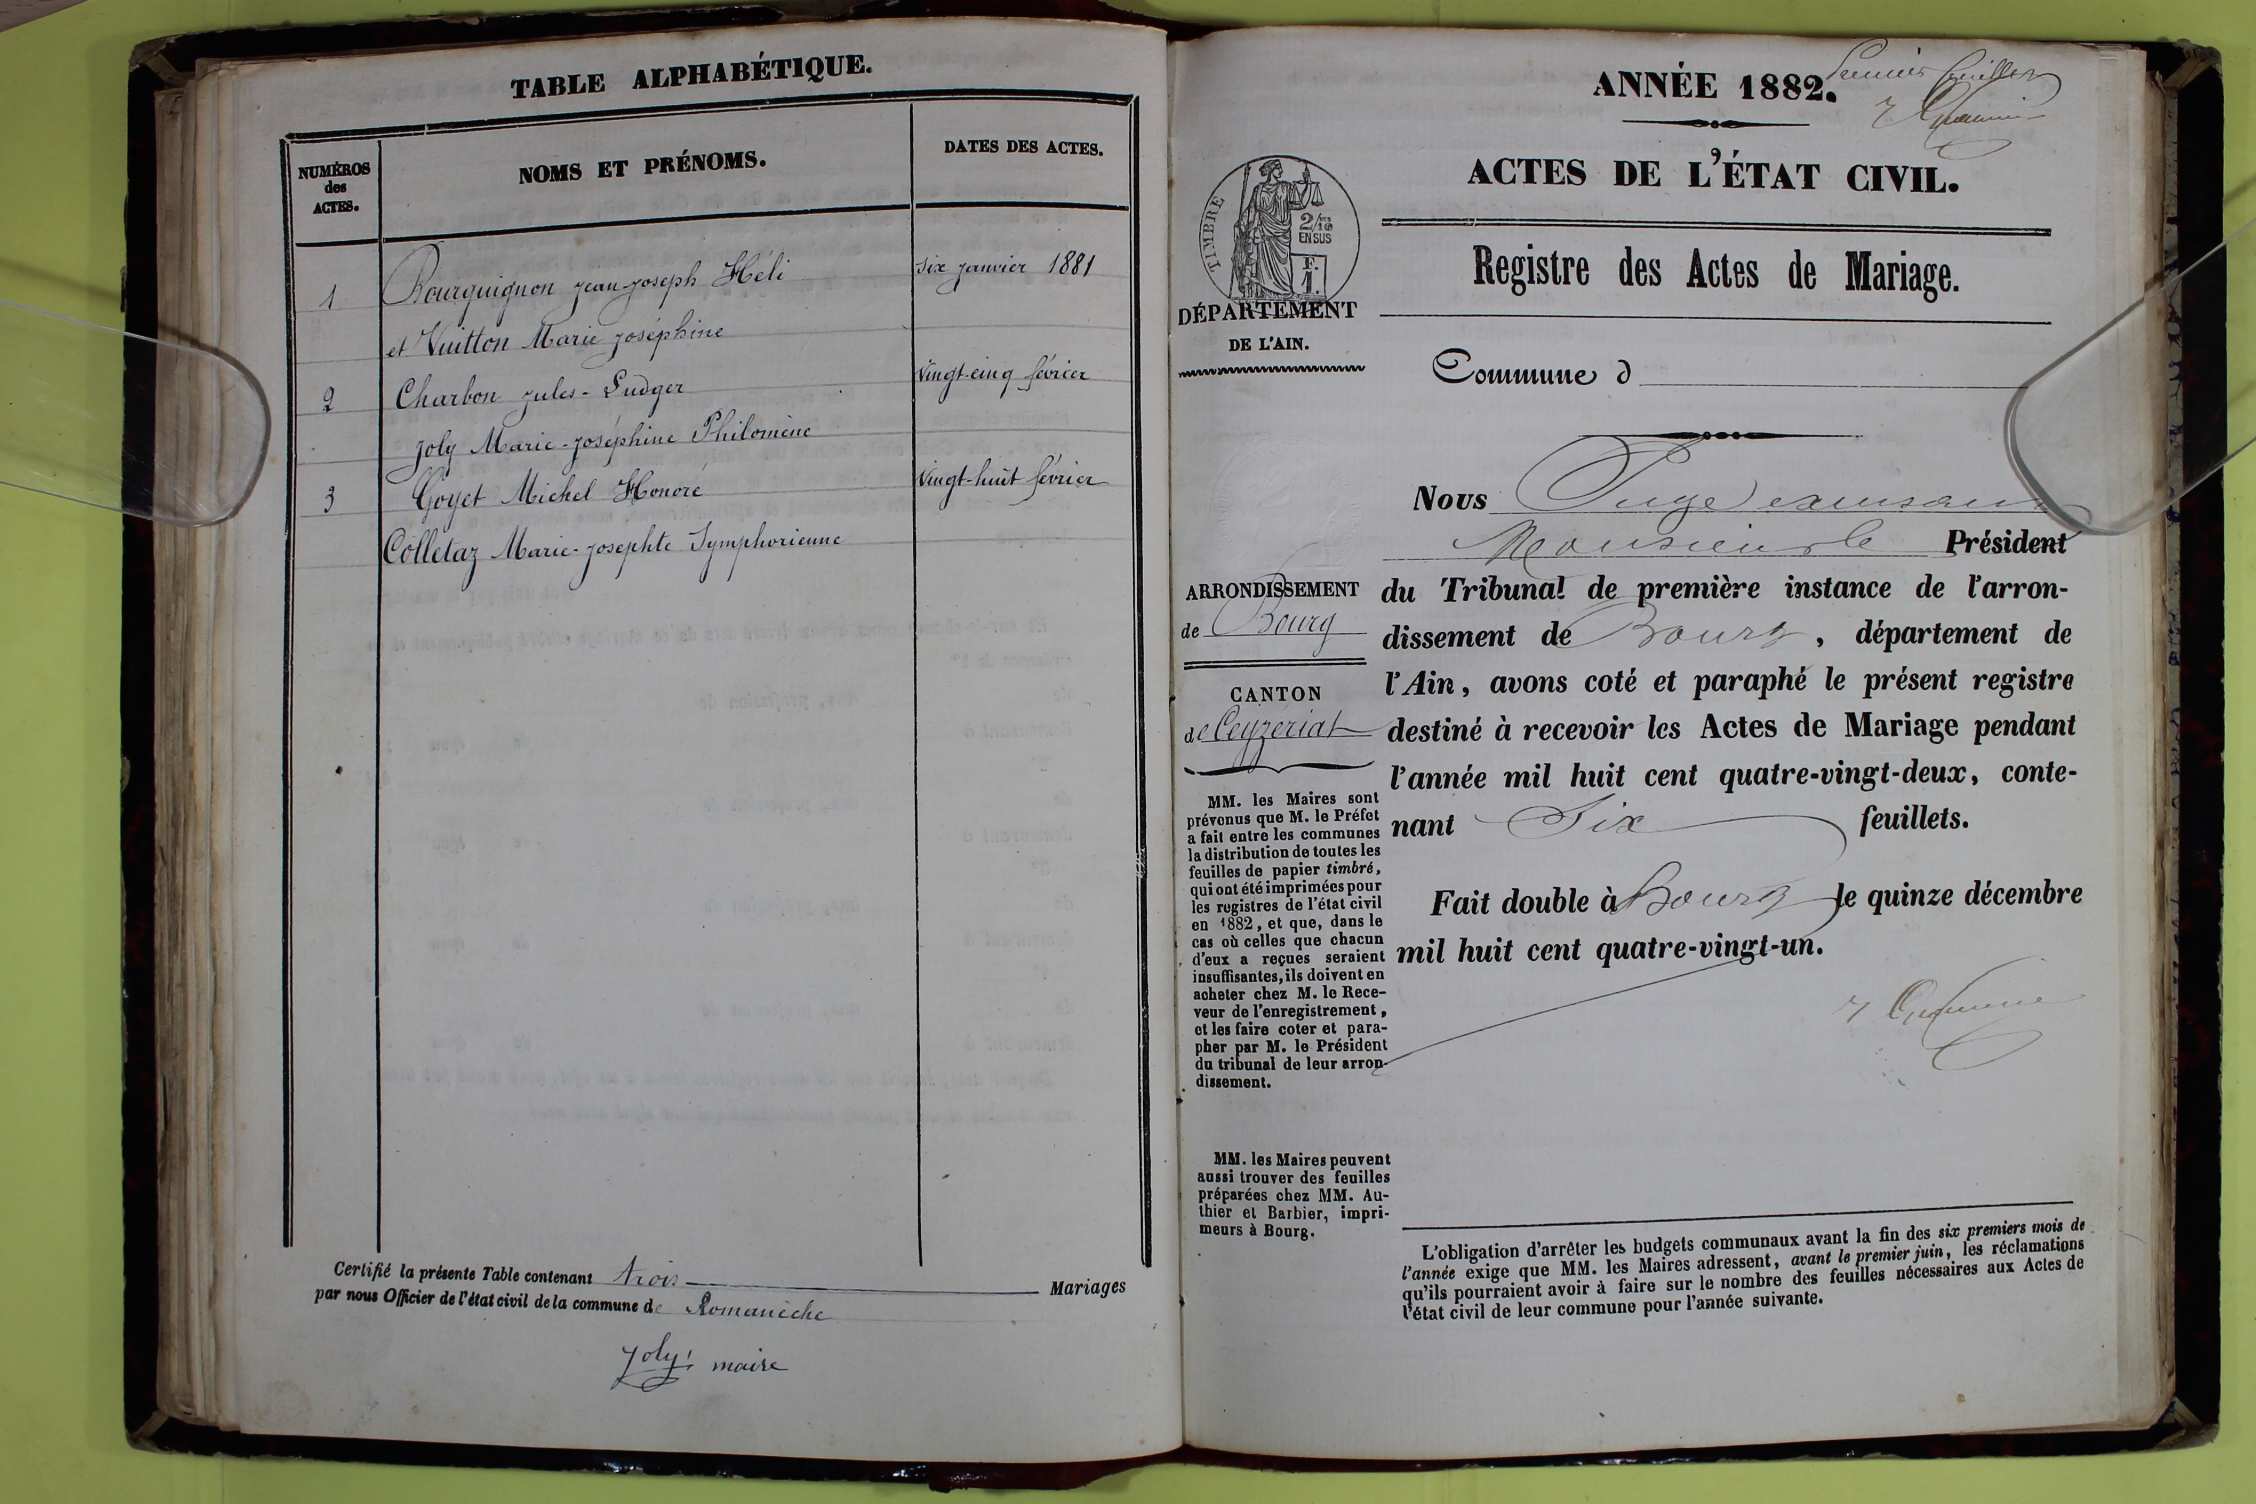 TABLE ALPHABÉTIQUE.
NUMÉROS
des
ACTES.
NOMS ET PRÉNOMS.
DATES DES ACTES.
1 Bourguignon jean-joseph Héli six janvier 1881
et Vuitton Marie joséphine
2 Charbon jules-Ludger vingt-cinq février
joly Marie-joséphine Philomène
3 Goyet Michel Honoré vingt-huit février
Colletaz Marie-josephte Symphorienne
Certifié la présente Table contenant trois Mariages
par nous Officier de l'état civil de la commune de Romanèche
Joly, maire
Premier feuillet
ANNÉE 1882.
ACTES DE L'ÉTAT CIVIL.
Registre des Actes de Mariage.
TIMBRE
2/10es
EN SUS
F.
1.
DÉPARTEMENT
DE L'AIN.
Commune d
ARRONDISSEMENT
de Bourg
CANTON
de Ceyzériat
MM. les Maires sont
prévenus que M. le Préfet
a fait entre les communes
la distribution de toutes les
feuilles de papier timbré,
qui ont été imprimées pour
les registres de l'état civil
en 1882, et que, dans le
cas où celles que chacun
d'eux a reçues seraient
insuffisantes, ils doivent en
acheter chez M. le Rece-
veur de l'enregistrement,
et les faire coter et para-
pher par M. le Président
du tribunal de leur arron-
dissement.
MM. les Maires peuvent
aussi trouver des feuilles
préparées chez MM. Au-
thier et Barbier, impri-
meurs à Bourg.
Nous Juge
Monsieur le Président
du Tribunal de première instance de l'arron-
dissement de Bourg, département de
l'Ain, avons coté et paraphé le présent registre
destiné à recevoir les Actes de Mariage pendant
l'année mil huit cent quatre-vingt-deux, conte-
nant Six feuillets.
Fait double à Bourg le quinze décembre
mil huit cent quatre-vingt-un.
L'obligation d'arrêter les budgets communaux avant la fin des six premiers mois de
l'année exige que MM. les Maires adressent, avant le premier juin, les réclamations
qu'ils pourraient avoir à faire sur le nombre des feuilles nécessaires aux Actes de
l'état civil de leur commune pour l'année suivante.